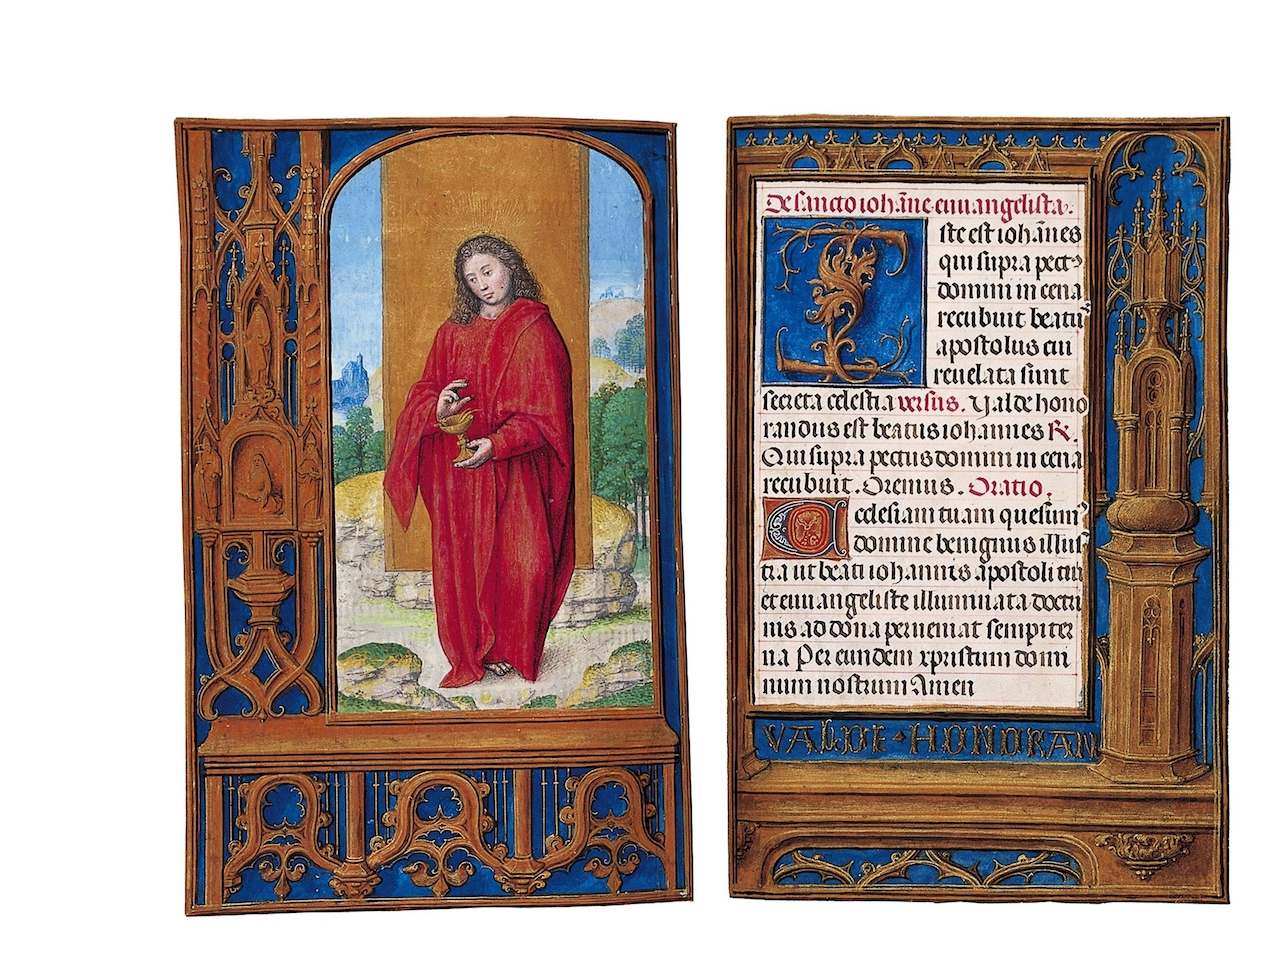 De sancto ioh̄ane euuangelista.
Iste est ioh̄anes
qui supra pect⁹
domini in cena
recubuit beatu᷒
apostolus cui
reuelata sunt
secreta celestia versus. Valde hono
randus est beatus iohannes ℟.
Qui supra pectus domini in cena
recubuit. Oremus. Oratio.
Ecclesiam tuam quesum᷒
domine benignus illus
tra ut beati iohannis apostoli tui
et euuangeliste illuminata doctri
nis ad dona perueniat sempiter
na Per eundem xpristum domi
num nostrum Amen
VALDE · HONORAN